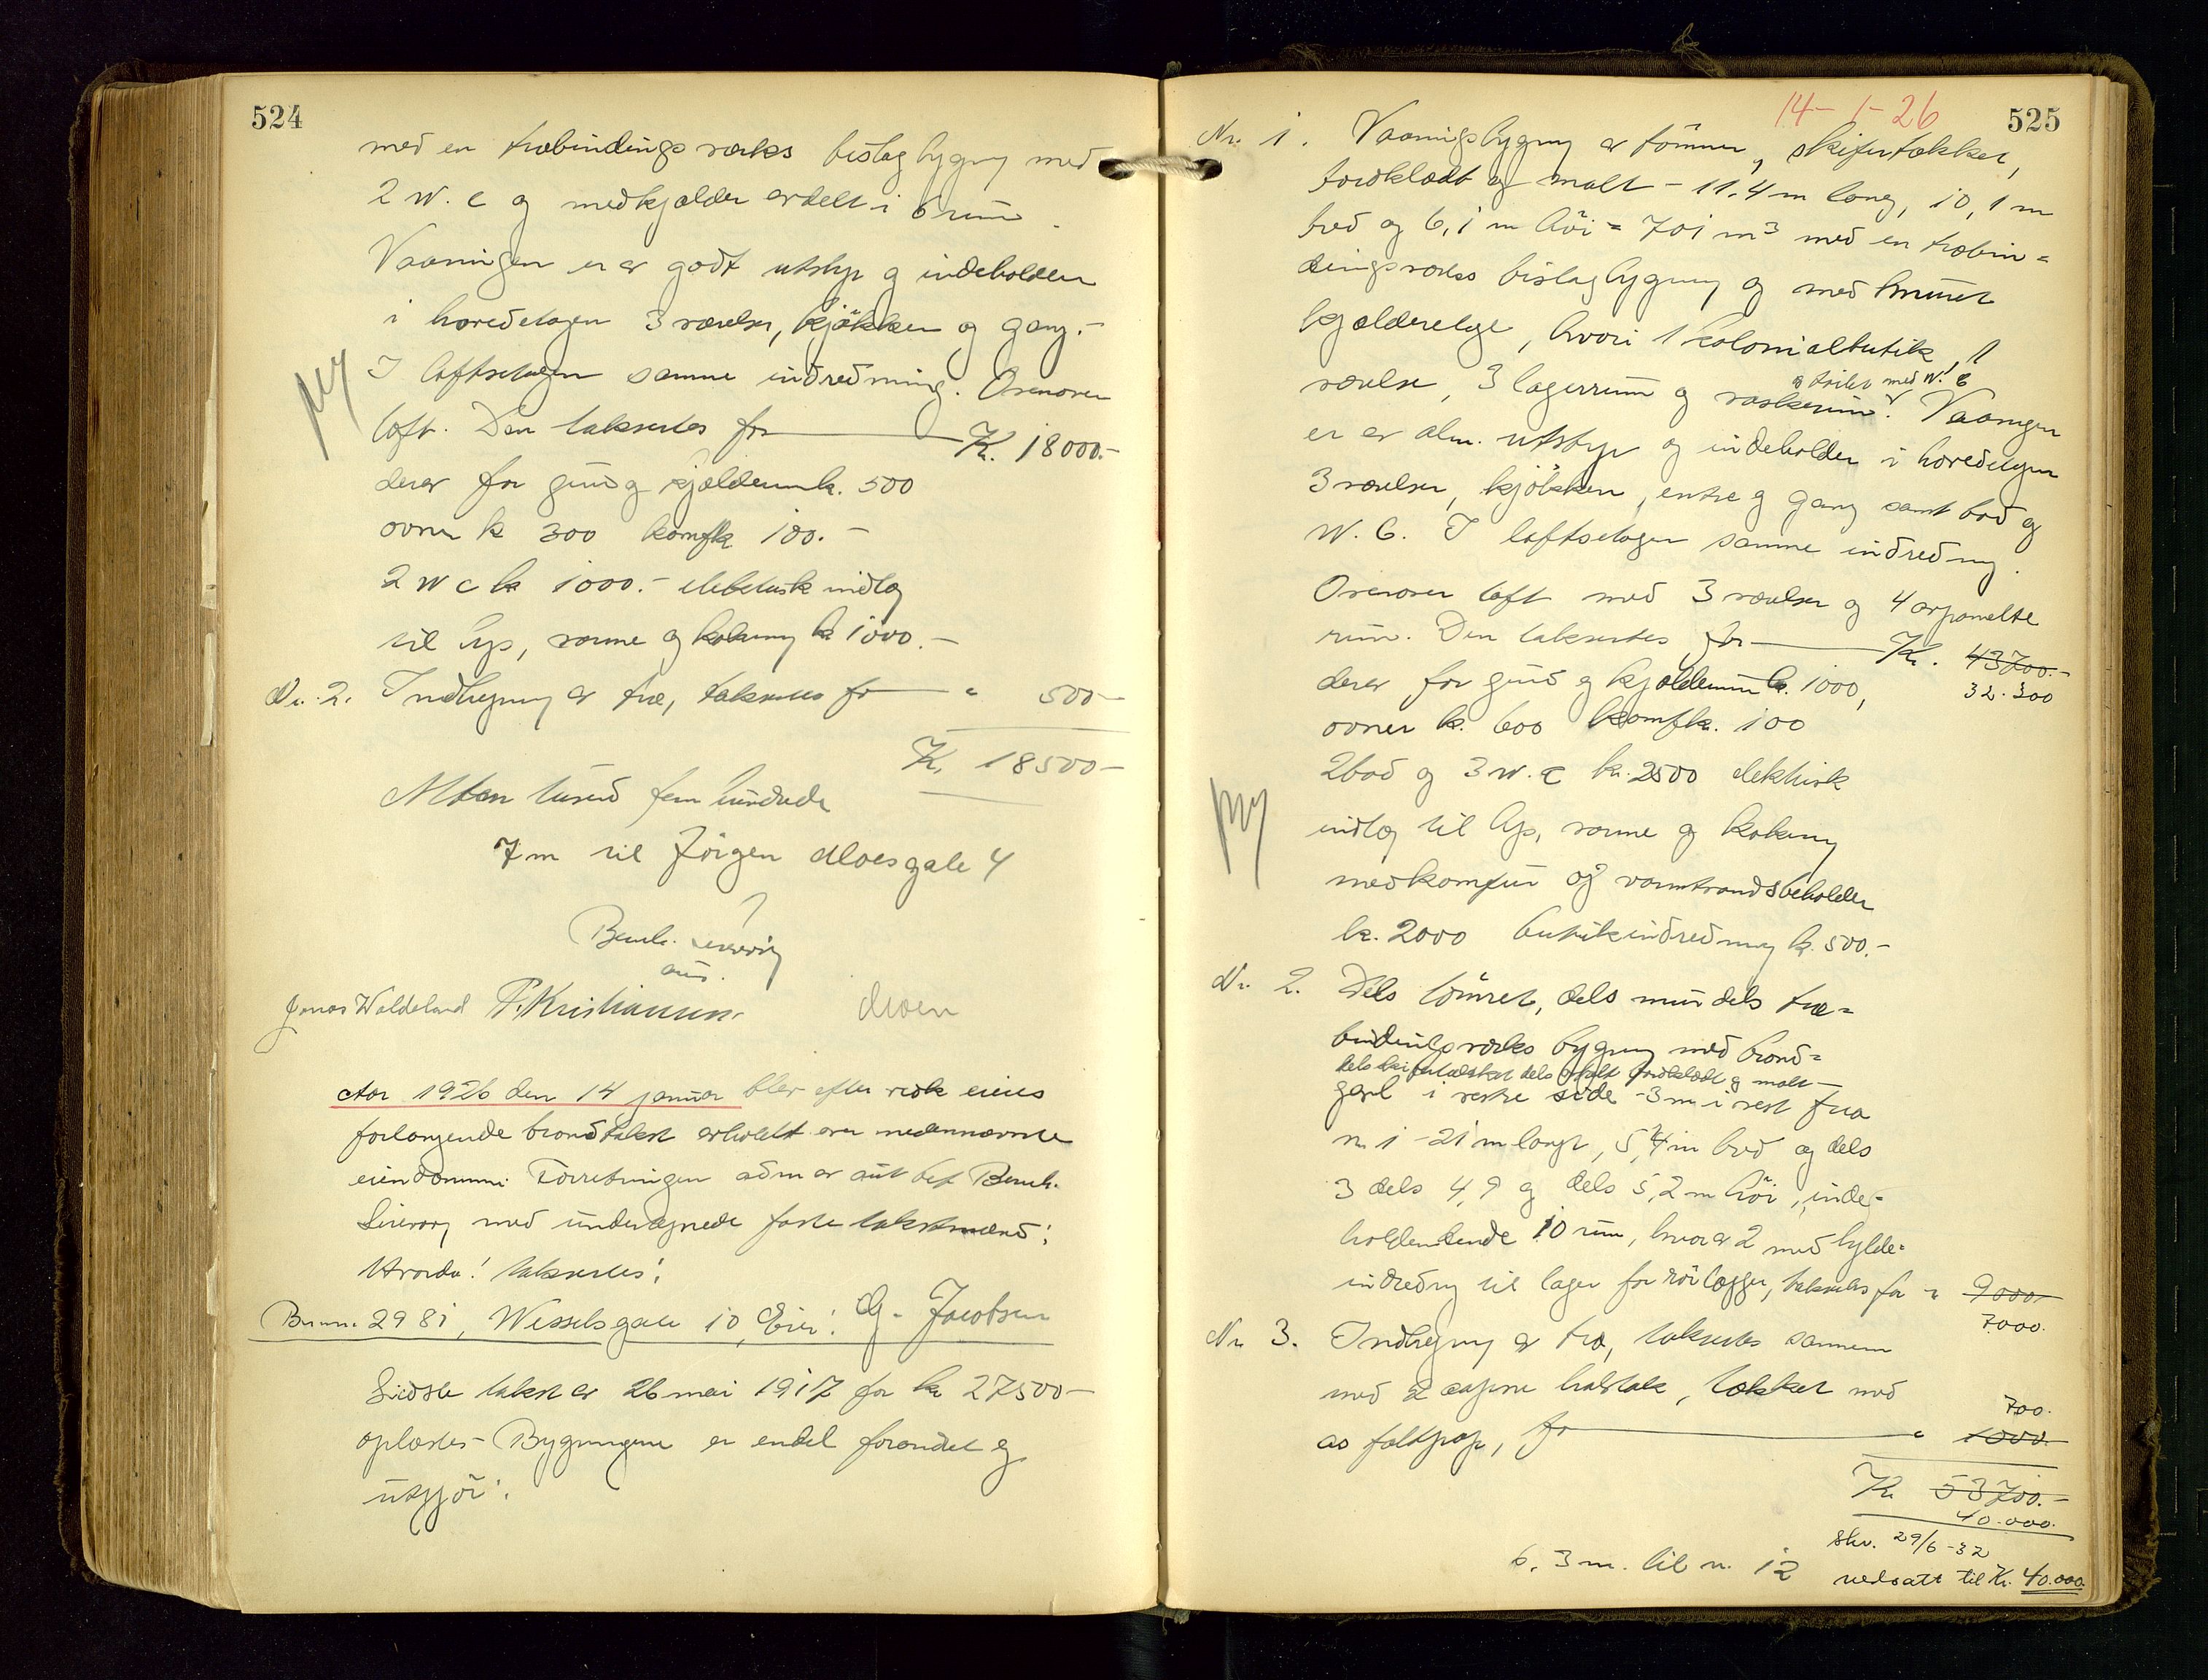 524
med en træbindingsverks bislagbygning med
2 W.C og medkjælder avdelt i 6 rum.
Vaaningen er av godt utstyr og indeholder
i hovedetagen 3 værelser, kjøkken og gang.-
I loftsetagen samme indredning. Ovenover
loft. Den takseres for K. 18000.-
derav for grund og kjælderum k. 500
ovner k 300 komf k 100.-
2 W C k 1000.- elektrisk indlæg
til lys, varme og kokning k 1000.-
Nr. 2. Indhegning av træ, takseres for " 500-
K. 18500-
Atten tusind fem hundrede
7 m til Jörgen Moesgate 4
Bernh.
aut.
Jonas Waldeland T. Kristiansen
Aar 1926 den 14 januar blev efter eiers
forlangende brandtakst avholdt over nedennævnte
eiendomme: Forretningen adm av aut bef Bernh.
med undertegnede faste takstmænd:
Hvorda! takseres:
Brnr. 2981, Wesselsgate 10, Eier: G. Jacobsen
Sidste takst av 26 mai 1917 for kr 27500-
oplæstes- Bygningene er endel forandret og
utgjør:
14-1-26
525
Nr. 1. Vaaningsbygning av tømmer, skifertækket,
bordklædt og malt - 11,4 m lang, 10,1 m
bred og 6,1 m høi = 701 m3 med en træbin=
dingsverks bislagbygning og med muret
kjælderetage, hvori 1 kolonialbutik, 1
og toilet med W.C
værelse, 3 lagerrum og vaskerum. Vaaningen
er av alm. utstyr og indeholder i hovedetagen
3 værelser, kjøkken, entre og gang samt bad og
W.C. I loftsetagen samme indredning.
Ovenover loft med 3 værelser og 4 avpanelte
rum. Den takseres for K. 43700.-
32.300
derav for grund og kjælderum k. 1000,
ovner k. 600 komf k. 100
2 bad og 3 W.C kr. 2500 elektrisk
indlæg til lys, varme og kokning
med komfur og varmtvandsbeholder
k. 2000 butikindredning k. 500.-
Nr. 2. Dels tømret, dels mur dels træ=
bindingsverks bygning med brand=
dels skifertækket dels bordklædt og malt -
gavl i vestre side - 3 m i vest fra
nr. 1 - 21 m langt, 5,4 m bred og dels
3 dels 4,9 og dels 5,2 m høi, inde=
holdende 10 rum, hvorav 2 med hylde=
indredng til lager for rörlægger, takseres for " 9000
7000.
Nr. 3. Indhegning av træ, takseres sammen
med et halvtak, tækket med
700.
as faltpap, for " 1000.
K. 53700.-
40.000.
skr. 29/6-32
6,3 m. til nr. 12 nedsatt til Kr. 40.000.